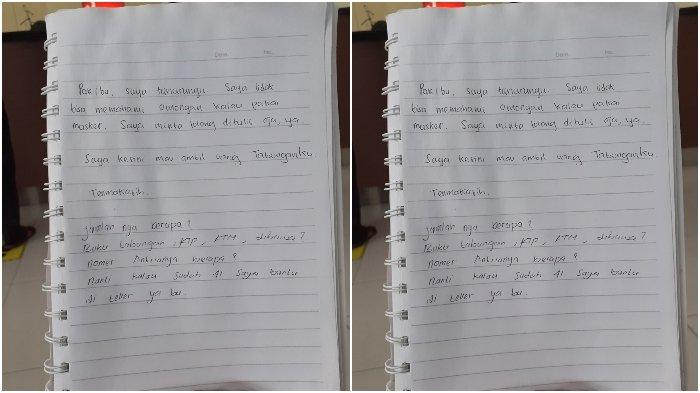 Date. No.
Pak/bu, saya tunarungu. Saya tidak
bisa memahami omongan kalau pakai
masker. Saya minta tolong ditulis aja, ya.
Saya kesini mau ambil uang Tabunganku.
Terimakasih.
jumlah nya berapa?
Buku tabungan, KTP, ATM, dibawa?
Nomer Antrianya berapa?
Nanti kalau sudah 41 saya bantu
di teller ya bu.
Date. No.
Pak/bu, saya tunarungu. Saya tidak
bisa memahami omongan kalau pakai
masker. Saya minta tolong ditulis aja, ya.
Saya kesini mau ambil uang Tabunganku.
Terimakasih.
jumlah nya berapa?
Buku tabungan, KTP, ATM, dibawa?
Nomer Antrianya berapa?
Nanti kalau sudah 41 saya bantu
di teller ya bu.